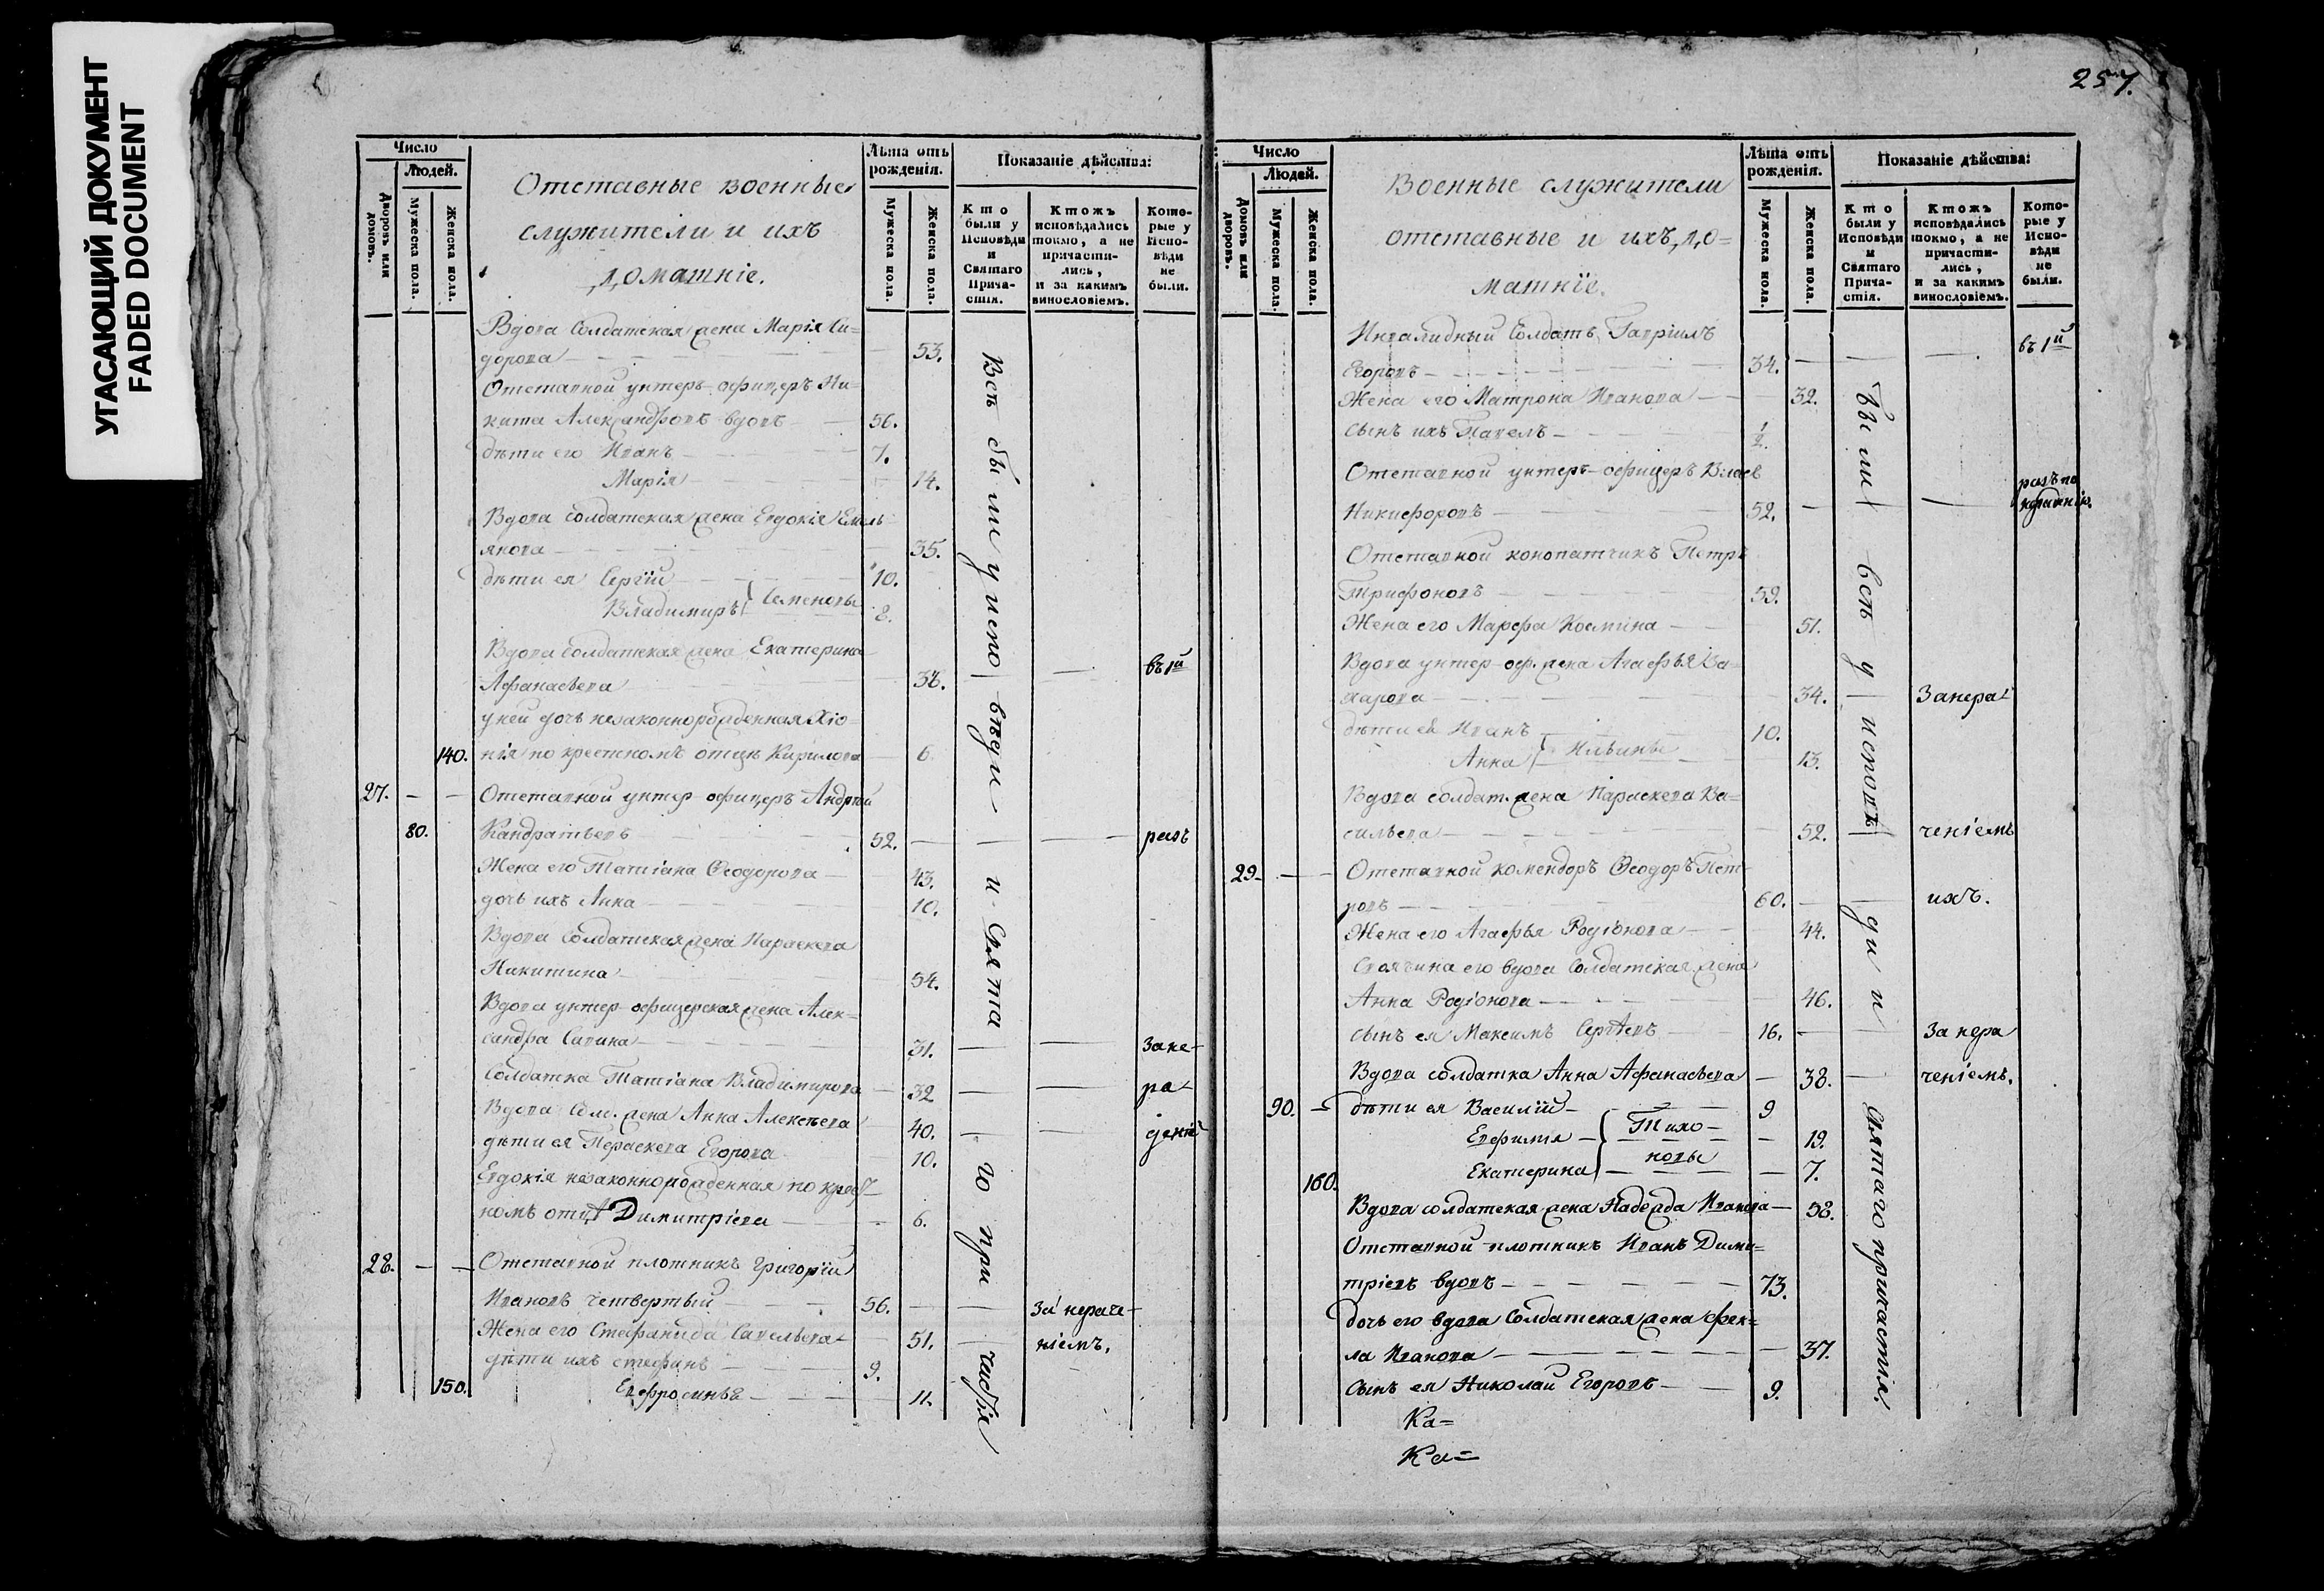 УГАСАЮЩИЙ ДОКУМЕНТ
FADED DOCUMENT
Число
Людей.
Дворовъ или домовъ.
Мужеска пола.
Женска пола.
Отставные военные
служители и ихъ
домашніе.
Лѣта отъ рожденія.
Мужеска пола.
Женска пола.
Показаніе дѣйства:
Кто были у Исповѣди и Святаго Прича-стія.
Ктожъ исповѣдались токмо, а не причасти-лись, и за какимъ винословіемъ.
Кото-рые у Испо-вѣди не были.
Вдова Солдатская жена Марія Си=
дорова 53.
Отставной унтеръ-офицеръ Ни=
кита Александровъ вдовъ 56.
дѣти его Иванъ 7.
Марія 14.
Вдова солдатская жена Евдокія Емель
янова 35.
дѣти ея Сергій 10.
Владимиръ Семеновы 8.
Вдова солдатская жена Екатерина
Афанасьева 38. въ 1й
у ней дочь незаконнорожденная Хіо=
140. нія по крестномъ отцѣ Кирилова 6
27. Отставной унтер-офицеръ Андрей
80. Кандратьевъ 52. разъ
Жена его Татіана Ѳеодорова 43.
дочь ихъ Анна 10.
Вдова Солдатская жена Параскева
Никитина 54.
Вдова унтер-офицерская жена Алек=
сандра Савина 31. за не-
Солдатка Татіана Владимирова 32 ра-
Вдова Сол. жена Анна Алексѣева 40.
дѣти ея Пераскева Егорова 10.
Евдокія незаконнорожденная по крест
номъ отцѣ Димитріева 6.
28. Отставной плотникъ Григорій
Ивановъ четвертый 56. за нераче-
Жена его Стефанида Савельева 51. ніемъ.
дѣти ихъ Стефанъ 9.
150. Евфросинья 11.
Всѣ были у исповѣди и Святаго причастія
257.
Число
Людей.
Домовъ или дворовъ.
Мужеска пола.
Женска пола.
Военные служители
отставные и ихъ до=
машніе.
Лѣта отъ рожденія.
Мужеска пола.
Женска пола.
Показаніе дѣйства:
Кто были у Исповѣди и Святаго Прича-стія.
Ктожъ исповѣдались токмо, а не причасти-лись, и за какимъ винословіемъ.
Кото-рые у Испо-вѣди не были.
Инвалидный Солдатъ Гавріилъ въ 1й
Егоровъ 34.
Жена его Матрона Иванова 32.
Сынъ ихъ Павелъ ½.
Отставной унтер-офицеръ Власъ
Никифоровъ 52. разъ по
Отставной конопатчикъ Петръ
Трифоновъ 59.
Жена его Марфа Космина 51.
Вдова унтер-оф. жена Агафья За=
харова 34. За нера-
дѣти ея Иванъ 10.
Анна Ильины 13.
Вдова солдат. жена Параскева Ва=
сильева 52. ченіемъ
29. Отставной комендоръ Ѳеодоръ Пет=
ровъ 60. ихъ.
Жена его Агафья Родіонова 44.
Своячина его вдова Солдатская жена
Анна Родіонова 46.
сынъ ея Максимъ Сергѣевъ 16. За нера
Вдова солдатка Анна Афанасьева 38. ченіемъ.
90. дѣти ея Василій 9
Евфимія Тихо- 19.
160. Екатерина новы 7.
Вдова солдатская жена Надежда Иванова 58.
Отставной плотникъ Иванъ Дими=
тріевъ вдовъ 73.
дочь его вдова Солдатская жена Фек=
ла Иванова 37.
Сынъ ея Николай Егоровъ 9.
Были всѣ у исповѣди и Святаго причастія.
Ка=
Ка=